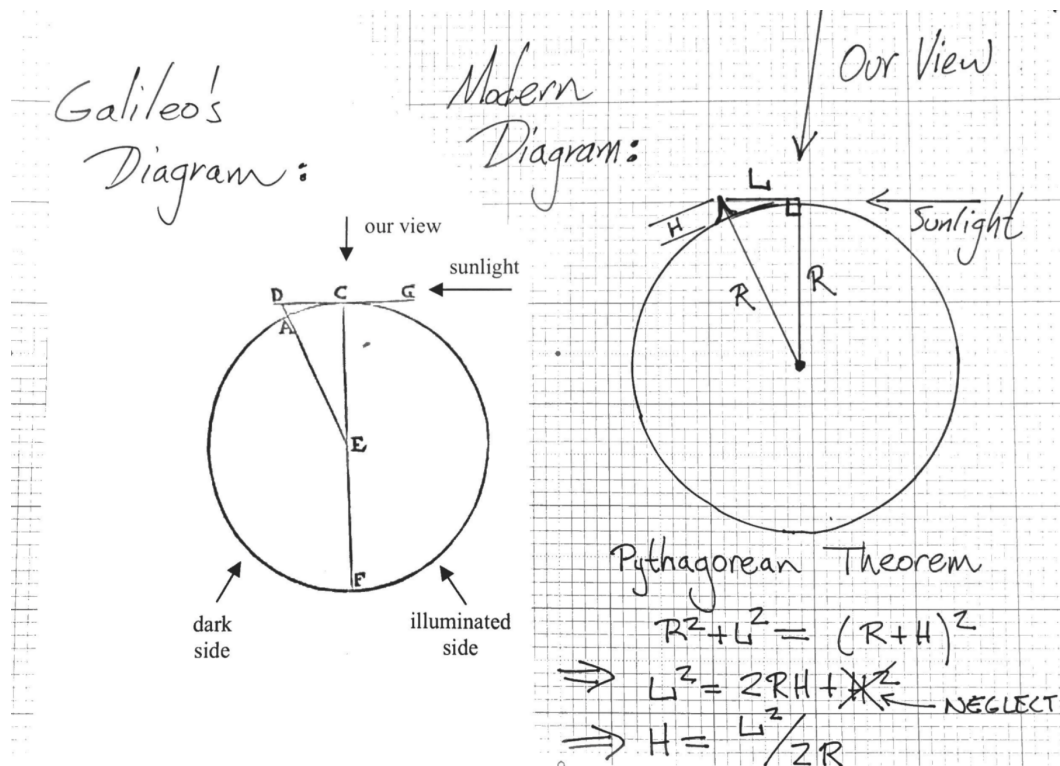 Galileo's
Diagram:
our view
sunlight
D C G
A
E
F
dark
side
illuminated
side
Modern
Diagram:
Our View
L
Sunlight
H
R R
Pythagorean Theorem
R²+L² = (R+H)²
⇒ L² = 2RH + H² ← NEGLECT
⇒ H = L²/2R